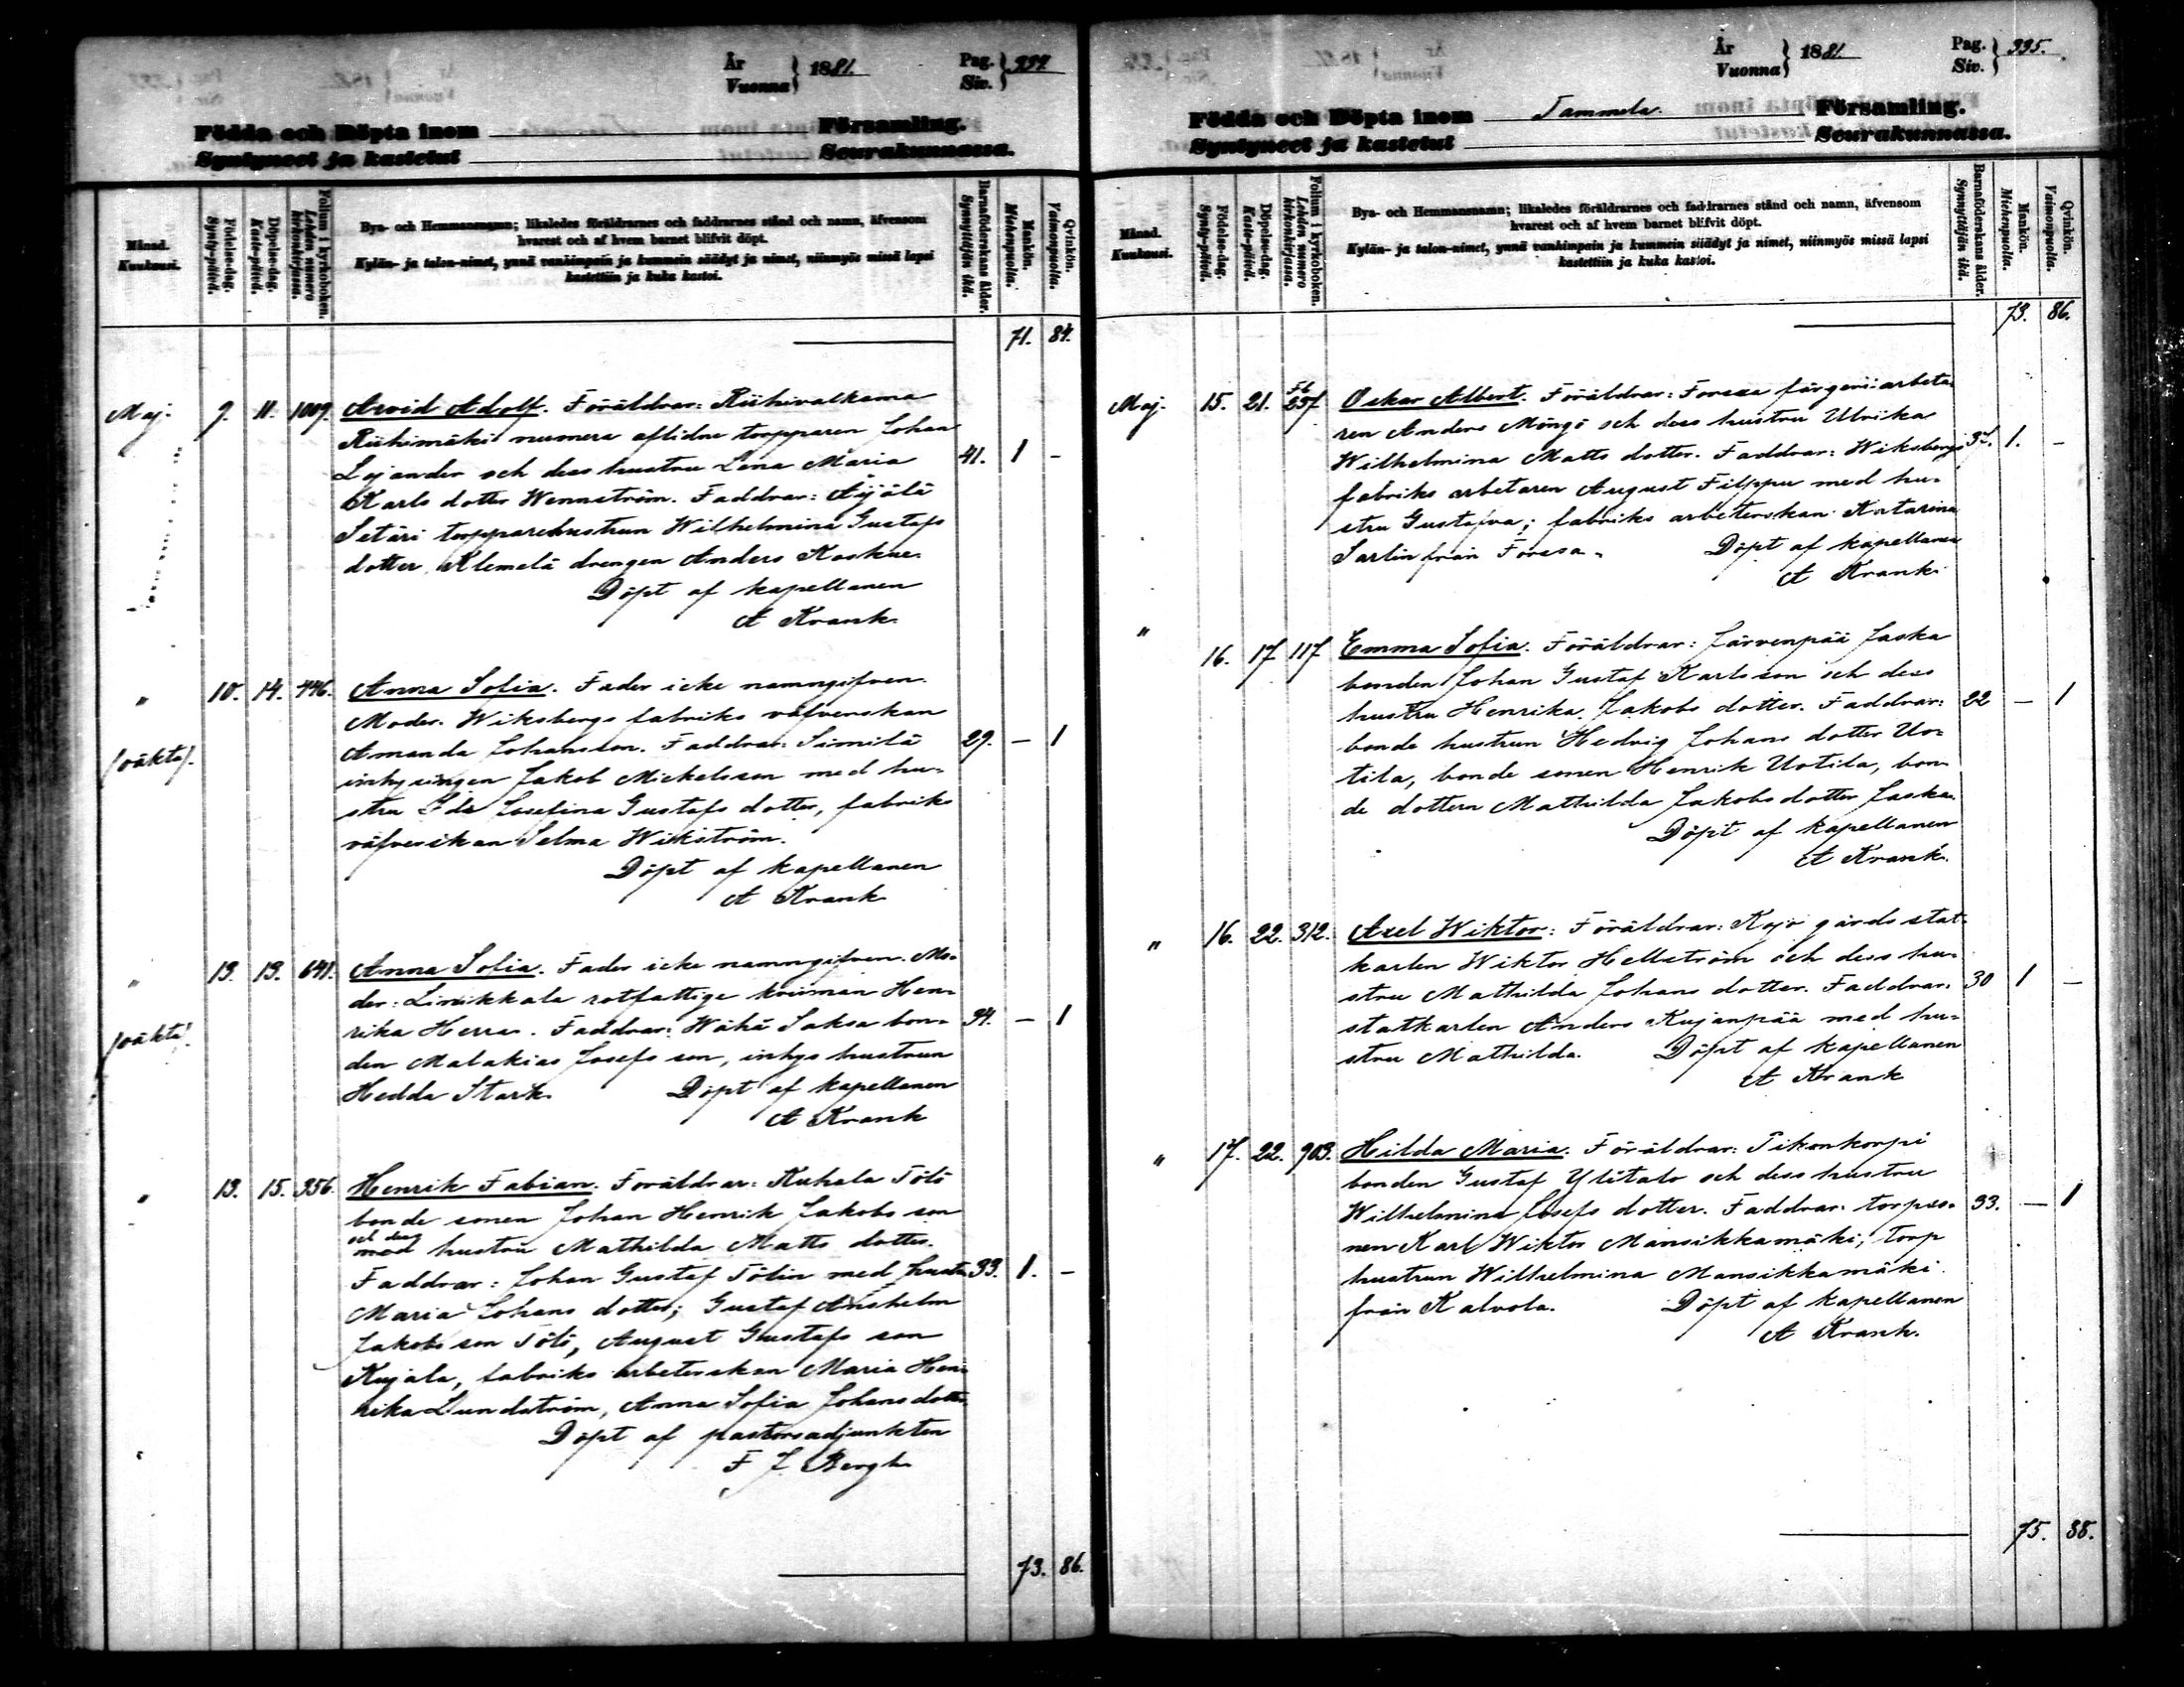 År
Vuonna
1881.
Pag.
Siv.
334
Födda och Döpta inom Församling.
Syntyneet ja kastetut Seurakunnassa.
Månad.
Kuukausi.
Födelse-dag.
Synty-päivä.
Döpelse-dag.
Kaste-päivä.
Folium i kyrkoboken.
Lehden numero kirkonkirjassa.
Bya- och Hemmansnamn; likaledes föräldrarnes och faddrarnes stånd och namn, äfvensom
hvarest och af hvem barnet blifvit döpt.
Kylän- ja talon-nimet, ynnä vanhimpain ja kummein säädyt ja nimet, niinmyös missä lapsi
kastettiin ja kuka kastoi.
Barnaföderskans ålder.
Synnyttäjän ikä.
Mankön.
Miehenpuolta.
Qvinkön.
Vaimonpuolta.
71. 84.
Maj. 9. 11. 1009. Arvid Adolf. Föräldrar: Riihivalkama
Riihimäki numera aflidne torpparen Johan
Lejander och dess hustru Lena Maria 41. 1 -
Karls dotter Wennström. Faddrar: Äyälä
Setäri torpparehustrun Wilhelmina Gustafs
dotter, Klemelä drengen Anders Koskue.
Döpt af kapellanen
A Krank.
" 10. 14. 446. Anna Sofia. Fader icke namngifven.
Moder. Wiksbergs fabriks väfverskan
(oäkta). Amanda Johansson. Faddrar: Similä 29. - 1
inhysingen Jakob Mickelsson med hu-
stru Ida Josefina Gustafs dotter, fabriks
väfverskan Selma Wikström.
Döpt af kapellanen
A Krank
" 13. 13. 641. Anna Sofia. Fader icke namngifven. Mo-
der: Linikkala rotfattige kvinnan Hen-
(oäkta). rika Herra. Faddrar: Wähä Saksa bon- 34. - 1
den Malakias Josefs son, inhys hustrun
Hedda Stark. Döpt af kapellanen
A Krank
" 13. 15. 356. Henrik Fabian. Foräldrar: Kuhala Tölö
bonde sonen Johan Henrik Jakobs son
och dess
med hustru Mathilda Matts dotter.
Faddrar: Johan Gustaf Tölin med hustru 33. 1. -
Maria Johans dotter; Gustaf Anshelm
Jakobs son Tölö, August Gustafs son
Kujala, fabriks arbeterskan Maria Hen-
rika Lundström, Anna Sofia Johans dotter.
Döpt af pastorsadjunkten
F J Bergh
73. 86.
År
Vuonna
1881.
Pag.
Siv.
335.
Födda och Döpta inom Tammela. Församling.
Syntyneet ja kastetut Seurakunnassa.
Månad.
Kuukausi.
Födelse-dag.
Synty-päivä.
Döpelse-dag.
Kaste-päivä.
Folium i kyrkoboken.
Lehden numero kirkonkirjassa.
Bya- och Hemmansnamn; likaledes föräldrarnes och faddrarnes stånd och namn, äfvensom
hvarest och af hvem barnet blifvit döpt.
Kylän- ja talon-nimet, ynnä vanhimpain ja kummein säädyt ja nimet, niinmyös missä lapsi
kastettiin ja kuka kastoi.
Barnaföderskans ålder.
Synnyttäjän ikä.
Mankön.
Miehenpuolta.
Qvinkön.
Vaimonpuolta.
73. 86.
Maj. 15. 21. Fb 257 Oskar Albert. Föräldrar: Forssa färgeriarbeta-
ren Anders Möngö och dess hustru Ulrika
Wilhelmina Matts dotter. Faddrar: Wiksbergs 37. 1. -
fabriks arbetaren August Filppu med hu-
stru Gustafva; fabriks arbeterskan Katarina
Sarlin från Forssa. Döpt af kapellanen
A Krank.
" 16. 17 117 Emma Sofia. Föräldrar: Järvenpää Jaska
bonden Johan Gustaf Karlsson och dess
hustru Henrika Jakobs dotter. Faddrar: 22 - 1
bonde hustrun Hedvig Johans dotter Uo-
tila, bonde sonen Henrik Uotila, bon-
de dottern Mathilda Jakobs dotter Jaska.
Döpt af kapellanen
A Krank.
" 16. 22. 312. Axel Wiktor: Föräldrar: Kojo gårds stat-
karlen Wiktor Hellström och dess hu-
stru Mathilda Johans dotter. Faddrar: 30 1 -
statkarlen Anders Kujanpää med hu-
stru Mathilda. Döpt af kapellanen
A Krank
" 17. 22. 903. Hilda Maria. Föräldrar: Pikonkorpi
bonden Gustaf Ylitalo och dess hustru
Wilhelmina Josefs dotter. Faddrar: torpso- 33. - 1
nen Karl Wiktor Mansikkamäki, torp
hustrun Wilhelmina Mansikkamäki
från Kalvola. Döpt af kapellanen
A Krank.
75. 88.